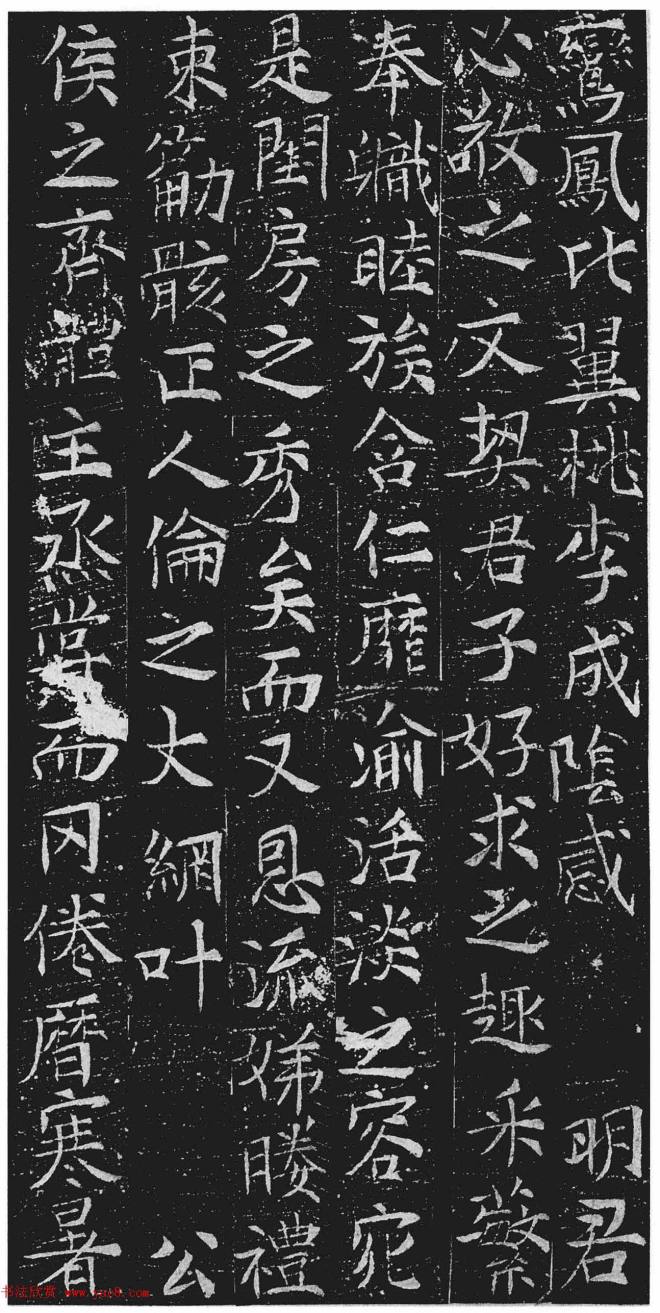 鸞鳳比翼桃李成陰感 明君
必敬之文契君子好求之趣采蘩
奉職睦族含仁靡渝活淡之容宛
是閨房之秀矣而又恩流娣媵禮
束筋骸正人倫之大網叶 公
侯之齊體主烝甞而罔倦曆寒暑
书法欣赏 www.yac8.com